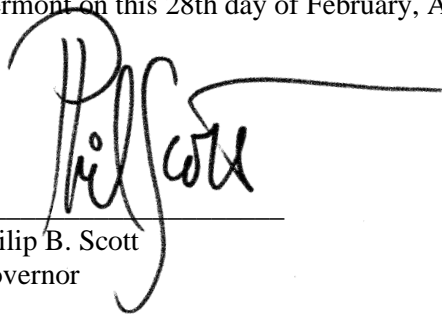 ermont on this 28th day of February, A
Phil Scott
ilip B. Scott
overnor